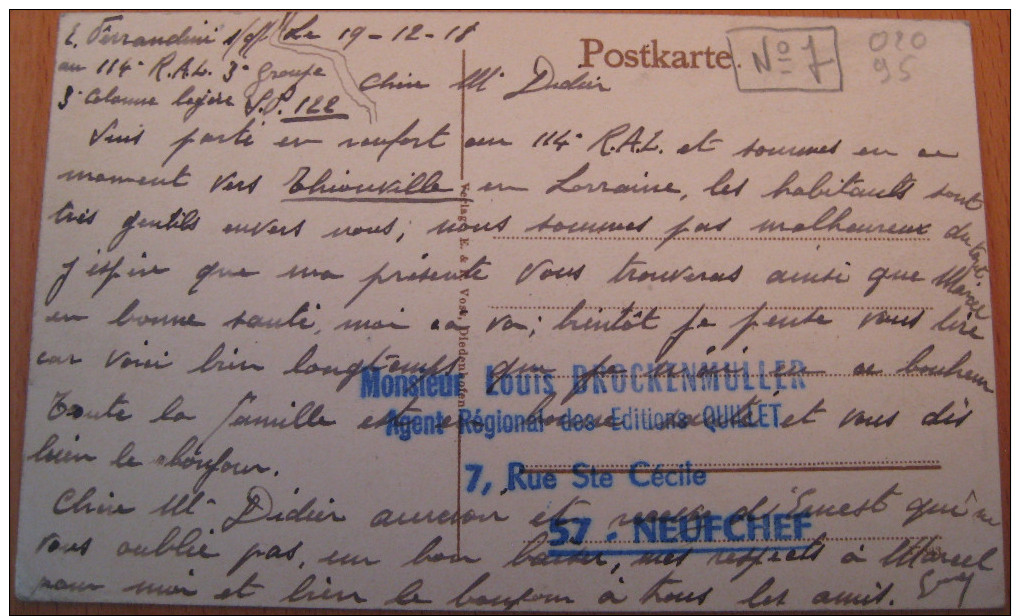 E. Ferrandini s/off Le 19-12-18
au 114e R.A.L. 3e Groupe
3e Colonne légère S.P. 122
Postkarte
No 7
020
95
Chère Me Didier
Suis parti en renfort au 114e R.A.L. et sommes en ce
moment vers Thionville en Lorraine, les habitants sont
très gentils envers nous; nous sommes pas malheureux du tout.
J'espère que ma présente vous trouveras ainsi que Marcel
en bonne santé, moi ça va; bientôt je pense vous lire
car voici bien longtemps que je n'ai eu ce bonheur
Toute la famille est en bonne santé et vous dis
bien le bonjour.
Chère Me Didier au revoir et d'Ernest qui ne
vous oublie pas, un bon baiser, mes respects à Marcel
pour moi et bien le bonjour à tous les amis.
Verlag: E. & Vost, Diedenhofen
Monsieur Louis BROCKENMULLER
Agent Régional des Editions QUILLET
7, Rue Ste Cécile
57 - NEUFCHEF